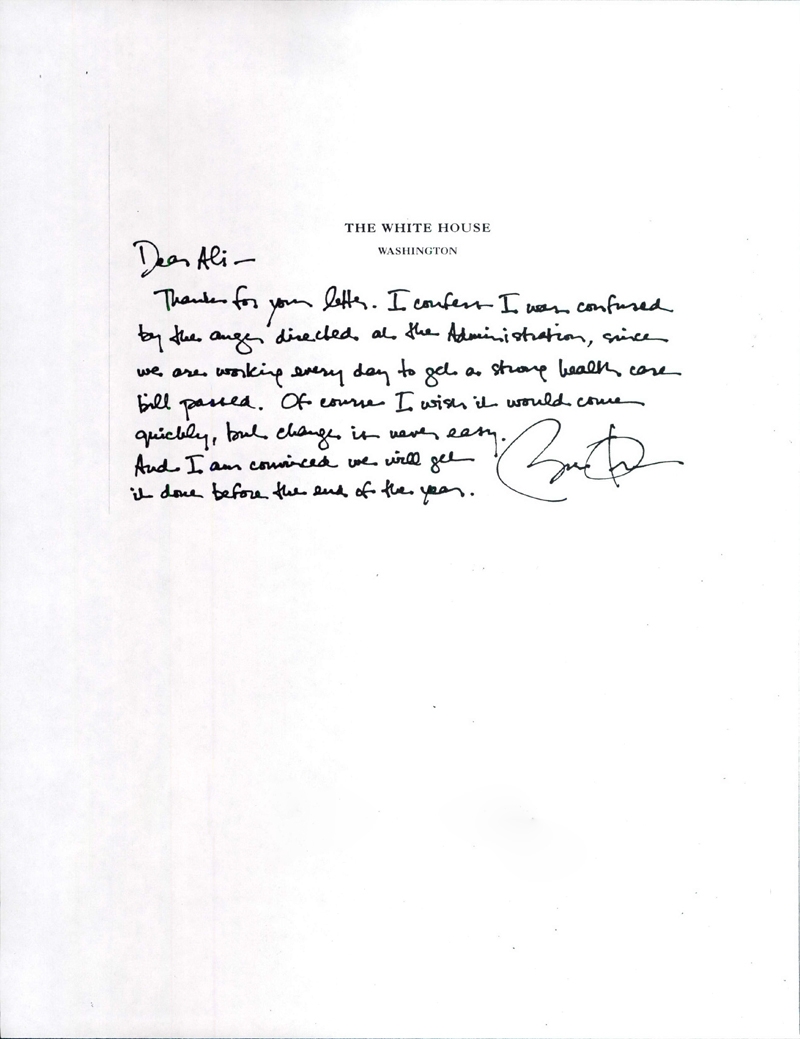 THE WHITE HOUSE
WASHINGTON
Dear Ali —
Thanks for your letter. I confess I was confused
by the anger directed at the Administration, since
we are working every day to get a strong health care
bill passed. Of course I wish it would come
quickly, but change is never easy.
And I am convinced we will get
it done before the end of the year.